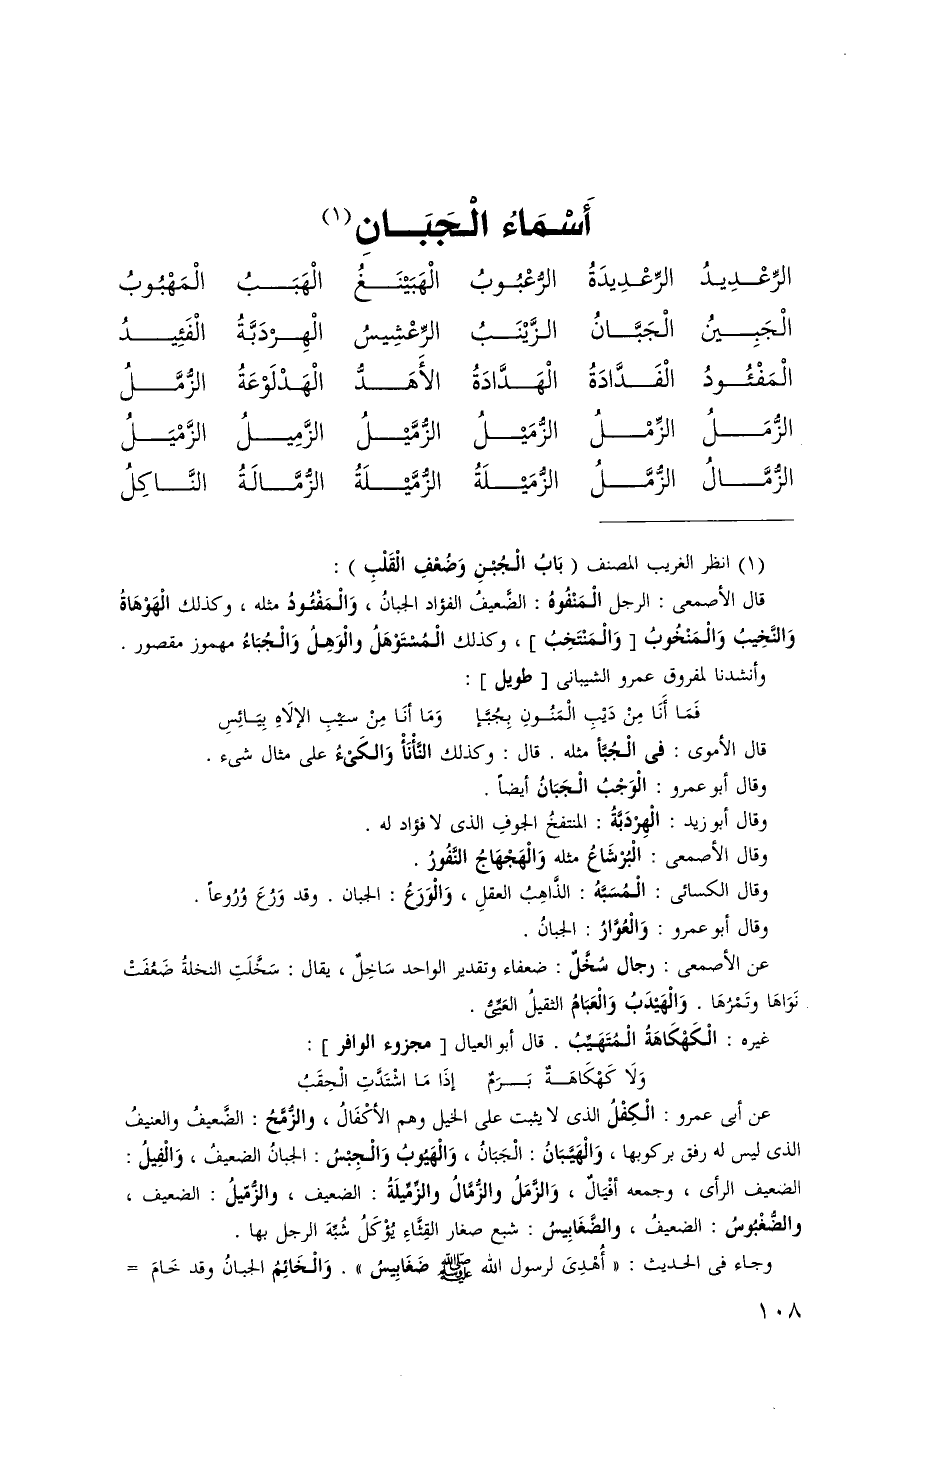 أَسْمَاءُ الْجَبَـــانِ(١)
الرِّعْـدِيـدُ الرِّعْـدِيدَةُ الرُّعْبُوبُ الْهَبَيْنَـــغُ الْهَبَـــبُ الْمَهْبُوبُ
الْجَبِـــينُ الْجَبَّـــانُ الـزَّيْنَـــبُ الرِّعْشِيسُ الْهِـرْدَبَّةُ الْفَئِيـــدُ
الْمَفْـئُـودُ الْفَـــدَّادَةُ الْهَـــدَّادَةُ الأَهَـــدُّ الْهَـدْلَوْعَةُ الزُّمَّـــلُ
الزُّمَـــلُ الزِّمْـــلُ الزُّمَيْـــلُ الزُّمَّيْـــلُ الزَّمِيـــلُ الزِّمْيَـــلُ
الزُّمَّـــالُ الزُّمَّـــلُ الزُّمَيْـــلَةُ الزُّمَّيْـــلَةُ الزُّمَّـــالَةُ النَّـــاكِلُ
(١) انظر الغريب المصنف ( بَابُ الْجُبْنِ وَضُعْفِ الْقَلْبِ ) :
قال الأصمعى : الرجل الْمَنْفُوهُ : الضَّعيفُ الفؤاد الجبانُ ، وَالْمَفْئُودُ مثله ، وكذلك الْهَوْهَاةُ
وَالنَّخِيبُ وَالْمَنْخُوبُ [ وَالْمَنْتَخِبُ ] ، وكذلك الْمُسْتَوْهَلُ والْوَهِلُ وَالْجُبَاءُ مهموز مقصور .
وأنشدنا لمفروق عمرو الشيبانى [ طويل ] :
فَمَا أَنَا مِنْ رَيْبِ الْمَنُونِ بِجُبَّإٍ وَمَا أنَا مِنْ سَيْبِ الإلَاهِ بِيَـائِسِ
قال الأموى : فى الْجُبَّأ مثله . قال : وكذلك النَّأْنَأُ وَالكَىْءُ على مثال شىء .
وقال أبو عمرو : الْوَجْبُ الْجَبَانُ أيضاً .
وقال أبو زيد : الْهِرْدَبَّةُ : المنتفخُ الجوفِ الذى لا فؤاد له .
وقال الأصمعى : الْبُرْشَاعُ مثله وَالْهَجْهَاجُ النَّفُورُ .
وقال الكسائى : الْمُسَبَّهُ : الذَّاهِبُ العقلِ ، وَالْوَرَعُ : الجبان . وقد وَرُعَ وُرُوعاً .
وقال أبو عمرو : وَالْعُوَّارُ : الجبانُ .
عن الأصمعى : رجال سُخَّلٌ : ضعفاء وتقدير الواحد سَاخِلٌ ، يقال : سَخَّلَتِ النخلةُ ضَعُفَتْ
نَوَاهَا وتَمْرُهَا . وَالْهَيْدَبُ وَالْعَبَامُ الثقيلُ العَيِىُّ .
غيره : الْكَهْكَاهَةُ الْمُتَهَيِّبُ . قال أبو العيال [ مجزوء الوافر ] :
وَلَا كَهْكَاهَـــةٌ بَـــرَمٌ إذَا مَا اشْتَدَّتِ الْحِقَبُ
عن أبى عمرو : الْكِفْلُ الذى لا يثبت على الخيل وهم الأكْفَالُ ، والزُّمَّحُ : الضَّعيفُ والعنيفُ
الذى ليس له رفق بركوبها ، وَالْهَيَّبَانُ : الْجَبَانُ ، وَالْهَيُوبُ وَالْجِبْسُ : الجبانُ الضعيفُ ، وَالْفِيلُ :
الضعيف الرأى ، وجمعه أفْيَالٌ ، وَالزَّمَلُ والزُّمَّالُ والزِّمِّيلَةُ : الضعيف ، والزُّمِّيلُ : الضعيف ،
والضُّغْبُوسُ : الضعيفُ ، والضَّغَابِيسُ : شبع صغار القِثَّاءِ يُؤْكَلُ شُبِّهَ الرجل بها .
وجاء فى الحديث : « أُهْدِىَ لرسول الله ﷺ ضَغَابِيسُ » . وَالْخَائِمُ الجبانُ وقد خَامَ =
١٠٨